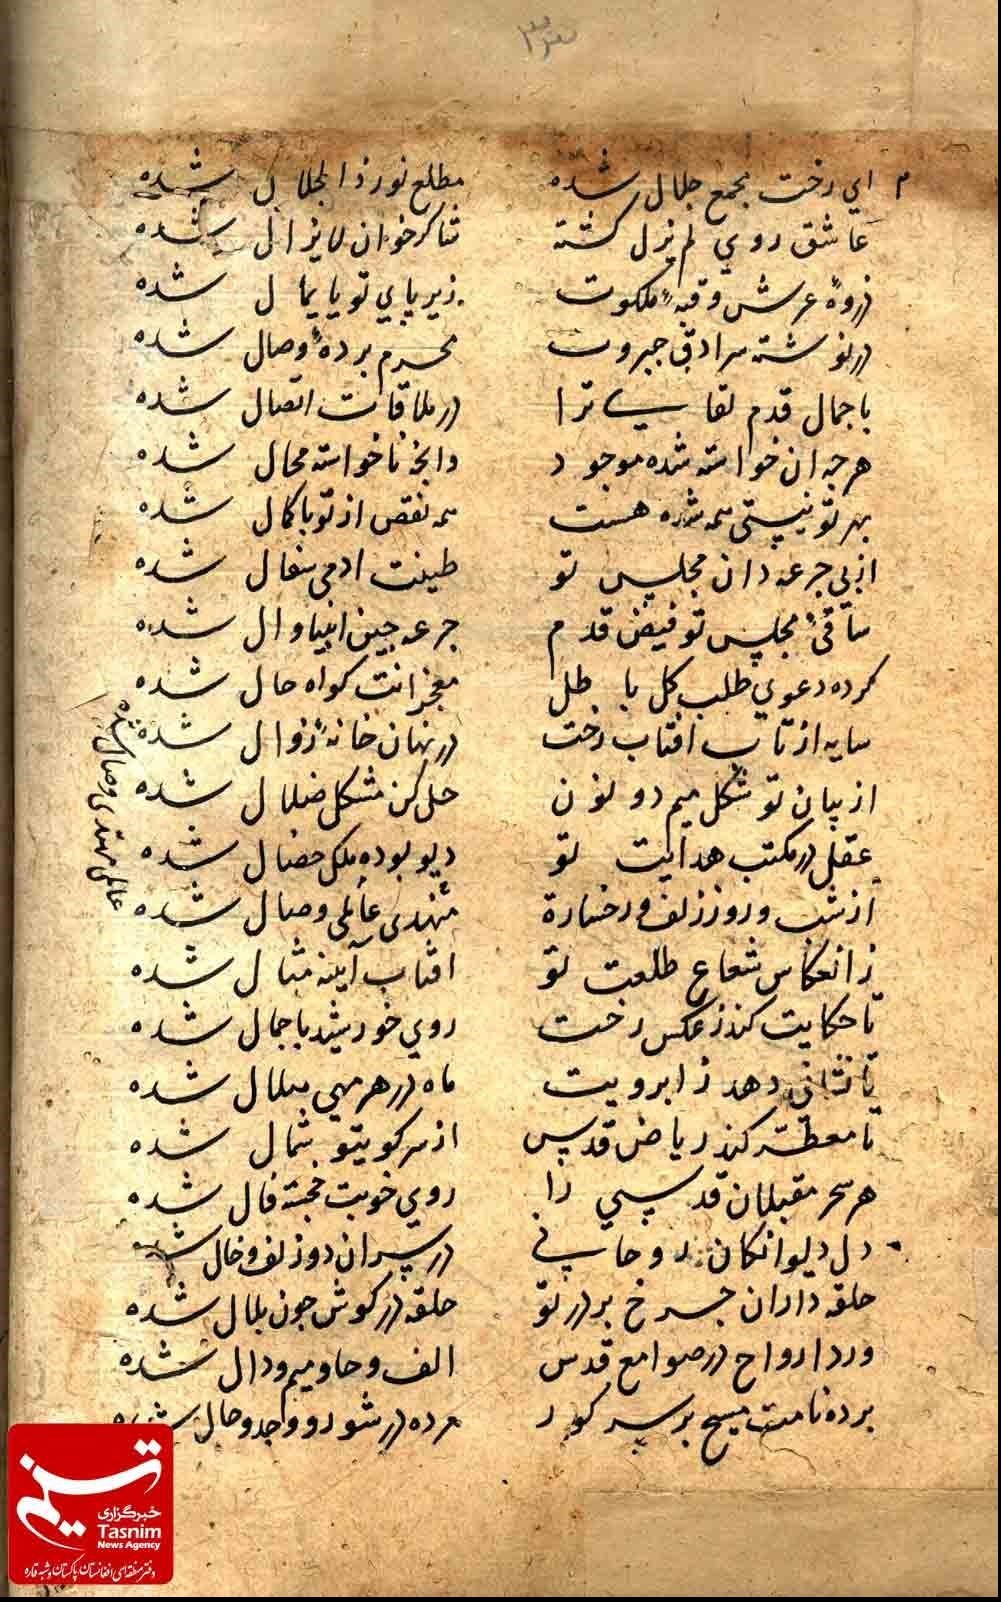 ۳۳
م ای رخت مجمع جلال شده مطلع نور ذوالجلال شده
عاشق روی لم یزل کشته ثناکر خوان لایزال شده
ذروهٔ عرش و قبهٔ ملکوت زیر پای تو پایمال شده
در نوشته سرادق جبروت محرم پردهٔ وصال شده
با جمال قدم لقای ترا در ملاقات اتصال شده
هرچه ان خواسته شده موجود وانچه ناخواسته محال شده
بهر تو نیستی همه شده هست همه نقص از تو با کمال شده
از پی جرعه دان مجلس تو طینت ادمی سفال شده
ساقیٔ مجلس تو فیض قدم جرعه چین انبیا و ال شده
کرده دعوی طلب کل باطل معجزاتت کواه حال شده
سایه از تاب افتاب رخت در نهان خانهٔ زوال شده
از بیان تو شکل میم دو نون حل کن مشکل ضلال شده
عقل در مکتب هدایت تو دیو بوده ملک خصال شده
از شب و روز زلف و رخساره مهتدی عاملی وصال شده
ز انعکاس شعاع طلعت تو افتاب آینه مثال شده
تا حکایت کند ز عکس رخت روی خورشید با جمال شده
تا نشانی دهد ز ابرویت ماه در هر مهی هلال شده
تا معطر کند ریاض قدس از سر کویتو شمال شده
هر سحر مقبلان قدسی را روی خوبت خجسته فال شده
دل دیوانکان روحانی در سر ان دو زلف و خال شده
حلقه داران چرخ بر در تو حلقه در کوش چون بلال شده
ورد ارواح در صوامع قدس الف و حا و میم و دال شده
برده نامت مسیح بر سر کور مرده در شور و وجد و حال شده
عاملی مهتدی وصال شده
تسنیم
خبرگزاری
Tasnim
News Agency
دفتر منطقه‌ای افغانستان پاکستان و شبه قاره